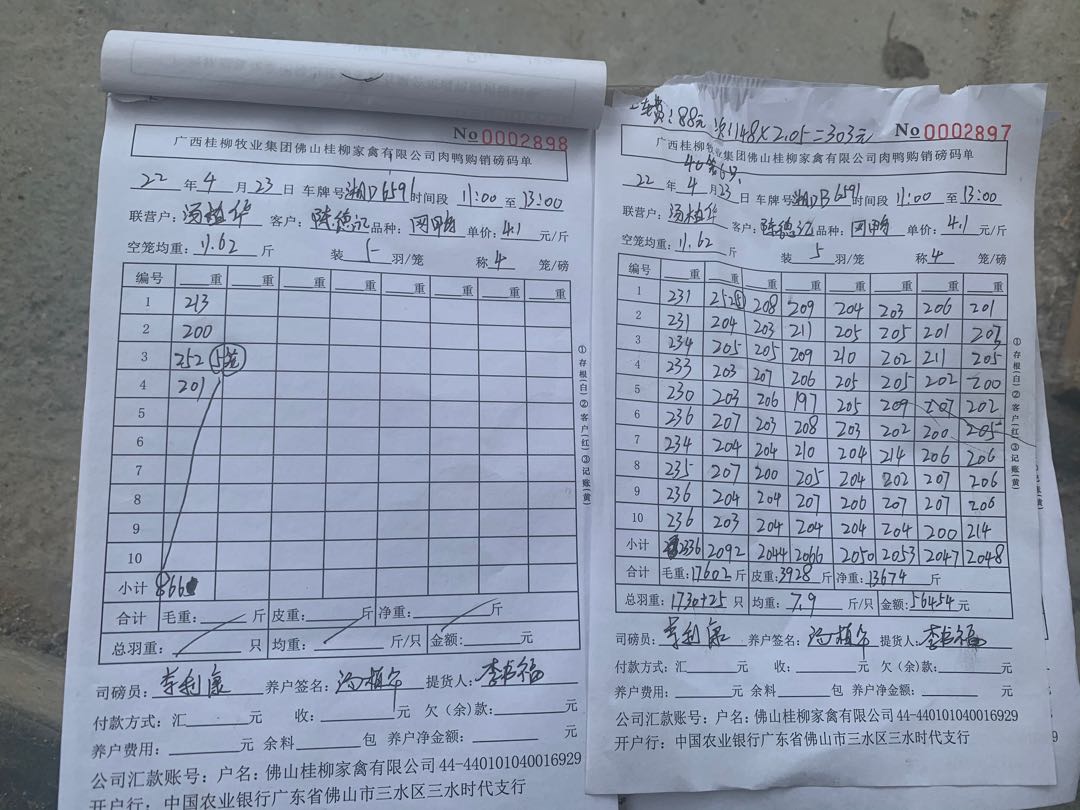 No 0002898
广西桂柳牧业集团佛山桂柳家禽有限公司肉鸭购销磅码单
22 年 4 月 23 日 车牌号 湘D6596 时间段 11:00 至 13:00
联营户: 汤植华 客户: 陈德记 品种: 网鸭 单价: 4.1 元/斤
空笼均重: 11.62 斤 装 5 羽/笼 称 4 笼/磅
编号 重 重 重 重 重 重 重 重
1 213
2 200
3 252 (5笼)
4 201
5
6
7
8
9
10
小计 866
合计 毛重: 斤 皮重: 斤 净重: 斤
总羽重: 只 均重: 斤/只 金额: 元
司磅员: 李利康 养户签名: 汤植华 提货人: 李书福
付款方式: 汇 元 收: 元 欠(余)款: 元
养户费用: 元 余料 包 养户净金额: 元
公司汇款账号: 户名: 佛山桂柳家禽有限公司 44-440101040016929
开户行: 中国农业银行广东省佛山市三水区三水时代支行
①存根(白)②客户(红)③记账(黄)
88元 次148×2.05=303元
No 0002897
广西桂柳牧业集团佛山桂柳家禽有限公司肉鸭购销磅码单
22 年 4 月 23 日 车牌号 湘DB6591 时间段 11:00 至 13:00
联营户: 汤植华 客户: 陈德记 品种: 网鸭 单价: 4.1 元/斤
空笼均重: 11.62 斤 装 5 羽/笼 称 4 笼/磅
编号 重 重 重 重 重 重 重 重
1 231 252(5) 208 209 204 203 206 201
2 231 204 203 211 205 205 201 207
3 234 205 205 209 210 202 211 205
4 233 203 207 206 205 205 202 200
5 230 203 206 197 205 209 207 202
6 236 207 203 208 203 202 200 205
7 234 204 204 210 204 214 206 206
8 235 207 200 205 204 202 207 206
9 236 204 204 207 206 207 207 206
10 236 203 204 204 204 204 200 214
小计 2336 2092 2044 2066 2050 2053 2047 2048
合计 毛重: 17602 斤 皮重: 3928 斤 净重: 13674 斤
总羽重: 1730+25 只 均重: 7.9 斤/只 金额: 56454 元
司磅员: 李利康 养户签名: 汤植华 提货人: 李书福
付款方式: 汇 元 收: 元 欠(余)款: 元
养户费用: 元 余料 包 养户净金额: 元
公司汇款账号: 户名: 佛山桂柳家禽有限公司 44-440101040016929
开户行: 中国农业银行广东省佛山市三水区三水时代支行
①存根(白)②客户(红)③记账(黄)